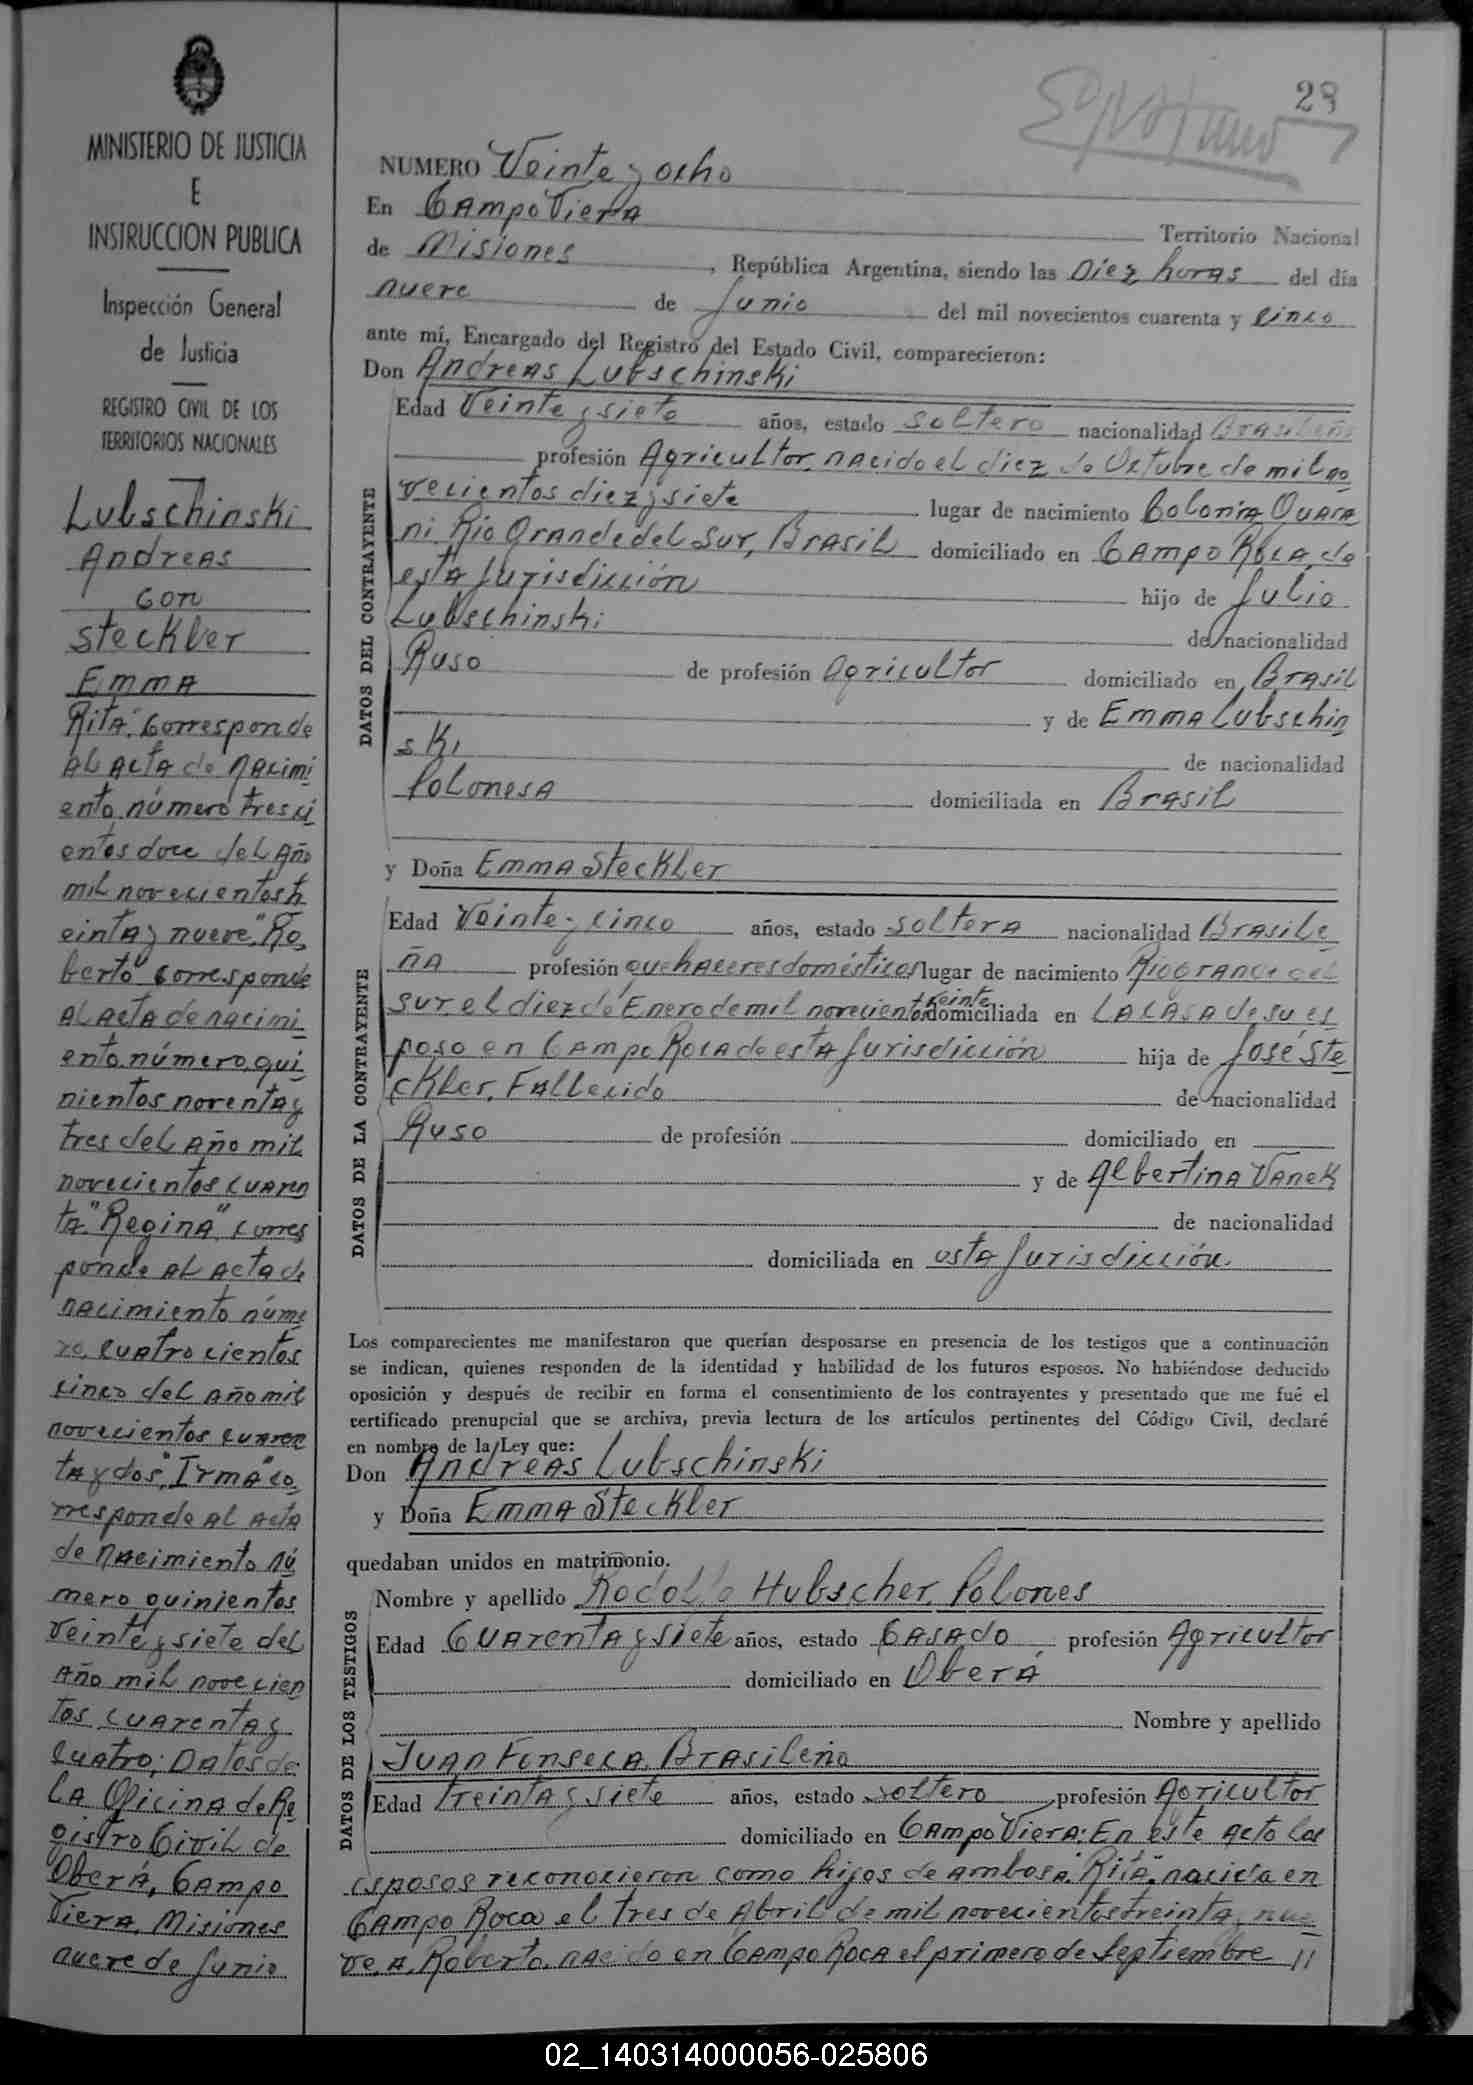 28
MINISTERIO DE JUSTICIA
E
INSTRUCCION PUBLICA
Inspección General
de Justicia
REGISTRO CIVIL DE LOS
TERRITORIOS NACIONALES
Lubschinski
Andreas
con
Steckler
Emma
"Rita" corresponde
al acta de nacimi
ento número tresci
entos doce del año
mil novecientos tr
einta y nueve "Ro
berto" corresponde
al acta de nacimi
ento número qui
nientos noventa y
tres del año mil
novecientos cuaren
ta "Regina" corres
ponde al acta de
nacimiento núme
ro cuatrocientos
cinco del año mil
novecientos cuaren
ta y dos, "Irma" co
rresponde al acta
de nacimiento nú
mero quinientos
veinte y siete del
año mil novecien
tos cuarenta y
cuatro; Datos de
la Oficina de Re
gistro Civil de
Oberá, Campo
Viera, Misiones
nueve de Junio
NUMERO Veinte y ocho
En Campo Viera Territorio Nacional
de Misiones, República Argentina, siendo las Diez horas del día
nueve de Junio del mil novecientos cuarenta y cinco
ante mí, Encargado del Registro del Estado Civil, comparecieron:
Don Andreas Lubschinski
DATOS DEL CONTRAYENTE
Edad Veinte y siete años, estado soltero nacionalidad Brasileño
profesión Agricultor, nacido el diez de Octubre de mil no
vecientos diez y siete lugar de nacimiento Colonia Guara
ni Rio Grande del Sur, Brasil domiciliado en Campo Roca, de
esta Jurisdicción hijo de Julio
Lubschinski de nacionalidad
Ruso de profesión Agricultor domiciliado en Brasil
y de Emma Lubschin
ski de nacionalidad
Polonesa domiciliada en Brasil
y Doña Emma Steckler
DATOS DE LA CONTRAYENTE
Edad Veinte y cinco años, estado soltera nacionalidad Brasile
ña profesión quehaceres domésticos lugar de nacimiento Rio Grande del
sur el diez de Enero de mil novecientos veinte domiciliada en la casa de su es
poso en Campo Roca de esta Jurisdicción hija de José Ste
ckler, Fallecido de nacionalidad
Ruso de profesión domiciliado en
y de Albertina Vanek
de nacionalidad
domiciliada en esta Jurisdicción.
Los comparecientes me manifestaron que querían desposarse en presencia de los testigos que a continuación
se indican, quienes responden de la identidad y habilidad de los futuros esposos. No habiéndose deducido
oposición y después de recibir en forma el consentimiento de los contrayentes y presentado que me fué el
certificado prenupcial que se archiva, previa lectura de los artículos pertinentes del Código Civil, declaré
en nombre de la Ley que:
Don Andreas Lubschinski
y Doña Emma Steckler
quedaban unidos en matrimonio.
DATOS DE LOS TESTIGOS
Nombre y apellido Rodolfo Hubscher, Polones
Edad Cuarenta y siete años, estado Casado profesión Agricultor
domiciliado en Oberá
Nombre y apellido
Juan Fonseca, Brasileño
Edad treinta y siete años, estado soltero profesión Agricultor
domiciliado en Campo Viera: En este acto los
esposos reconocieron como hijos de ambos a "Rita" nacida en
Campo Roca el tres de Abril de mil novecientos treinta y nue
ve, a, Roberto, nacido en Campo Roca el primero de Septiembre //
02_140314000056-025806